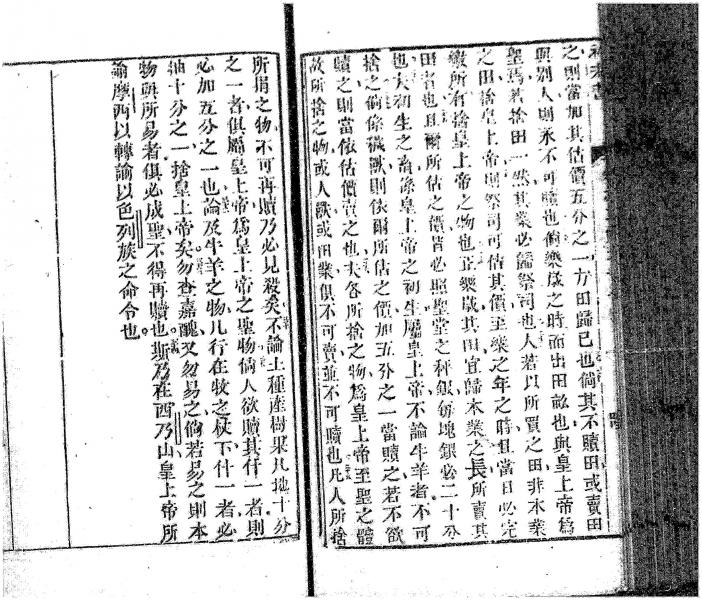 之則當加其估價五分之一方田歸已也倘其不贖田或賣田
與別人則永不可贖也倘樂歲之時而出田畝也與皇上帝為
聖焉若捨田一然其業必歸祭司也人若以所買之田非本業
之田捨皇上帝則祭司可估其價至樂之年之時且當日必完
繳所有捨皇上帝之物也正樂歲其田宜歸本業之長所賣其
田者也且爾所估之價皆必照聖堂之秤銀每塊銀必二十分
也夫初生之畜係皇上帝之初生屬皇上帝不論牛羊者不可
捨之倘係穢獸則依爾所估之價加五分之一當贖之若不欲
贖之則當依估價賣之也夫各所捨之物為皇上帝至聖之體
故所捨之物或人獸或田業俱不可賣並不可贖也凡人所捨
所捐之物不可再贖乃必見殺矣不論土種產樹果凡地十分
之一者俱屬皇上帝為皇上帝之聖物倘人欲贖其什一者則
必加五分之一也論及牛羊之物凡行在牧之杖下什一者必
抽十分之一捨皇上帝矣勿查嘉醜又勿易之倘若易之則本
物與所易者俱必成聖不得再贖也斯乃在西乃山皇上帝所
諭摩西以轉諭以色列族之命令也